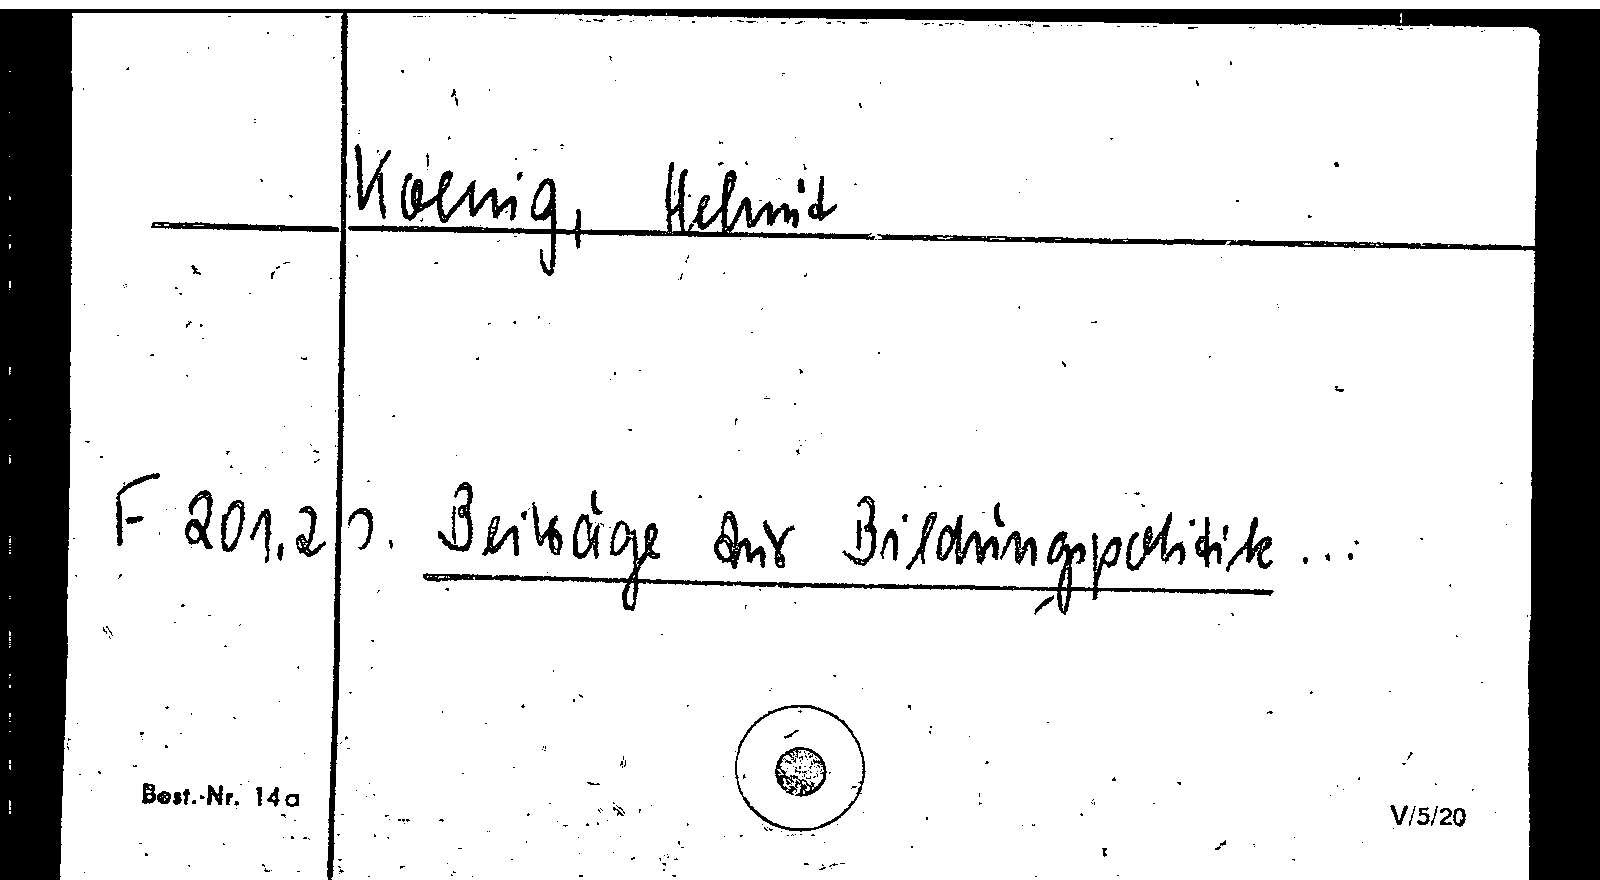 Koenig, Helmut
F 201,2 s. Beiträge zur Bildungspolitik ...
Best.-Nr. 14a
V/5/20